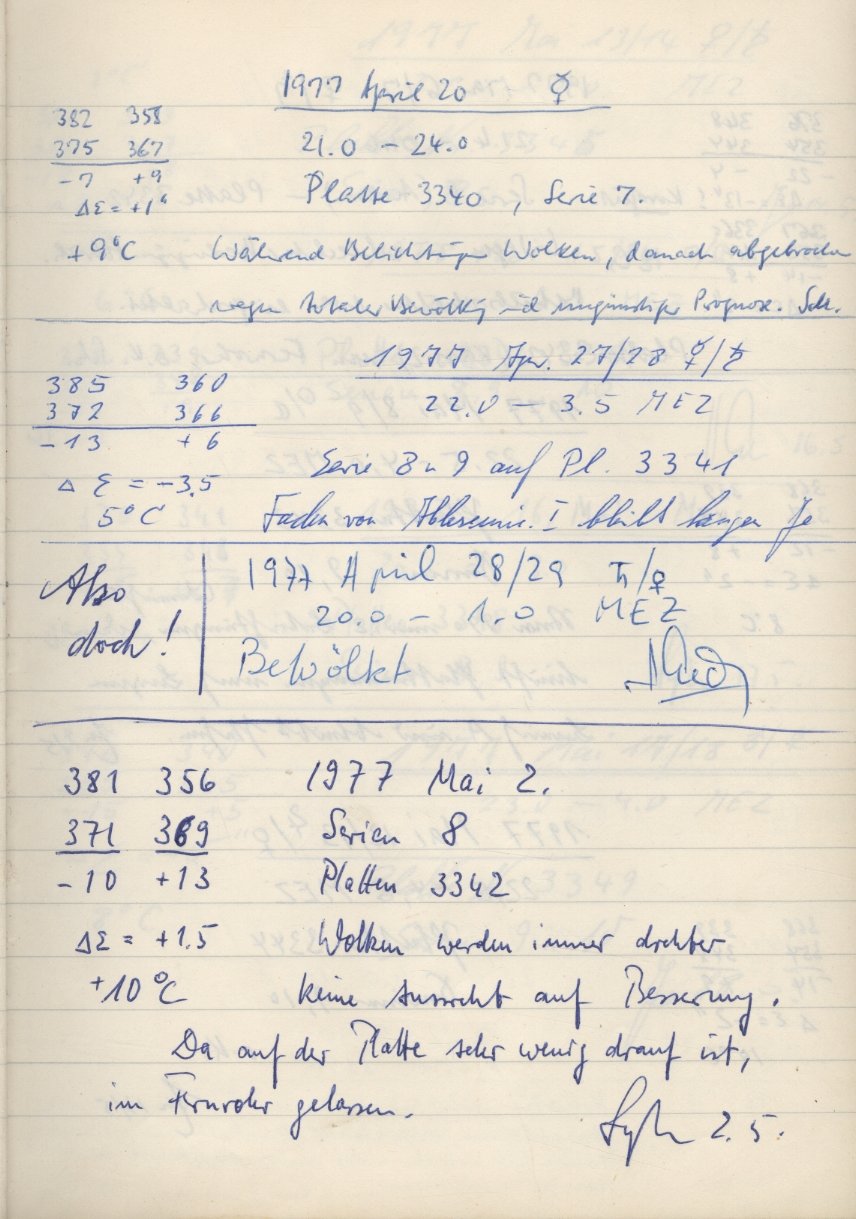 1977 April 20 ☿
382 358
375 367
-7 +9
21.0 – 24.0
ΔΣ = +1
Platte 3340, Serie 7.
+9°C Während Belichtung Wolken, danach abgebrochen
wegen totaler Bewölkg und ungünstiger Prognose. Sch.
1977 Apr. 27/28 ☿/♃
385 360
372 366
-13 +6
22.0 – 3.5 MEZ
Serie 8 u 9 auf Pl. 3341
Δ Σ = -3.5
5°C Faden von I bleibt hängen
Also
doch!
1977 April 28/29 ♄/♀
20.0 – 1.0 MEZ
Bewölkt
381 356 1977 Mai 2.
371 369 Serien 8
-10 +13 Platten 3342
ΔΣ = +1.5 Wolken werden immer dichter
+10°C keine Aussicht auf Besserung.
Da auf der Platte sehr wenig drauf ist,
im Fernrohr gelassen.
2.5.